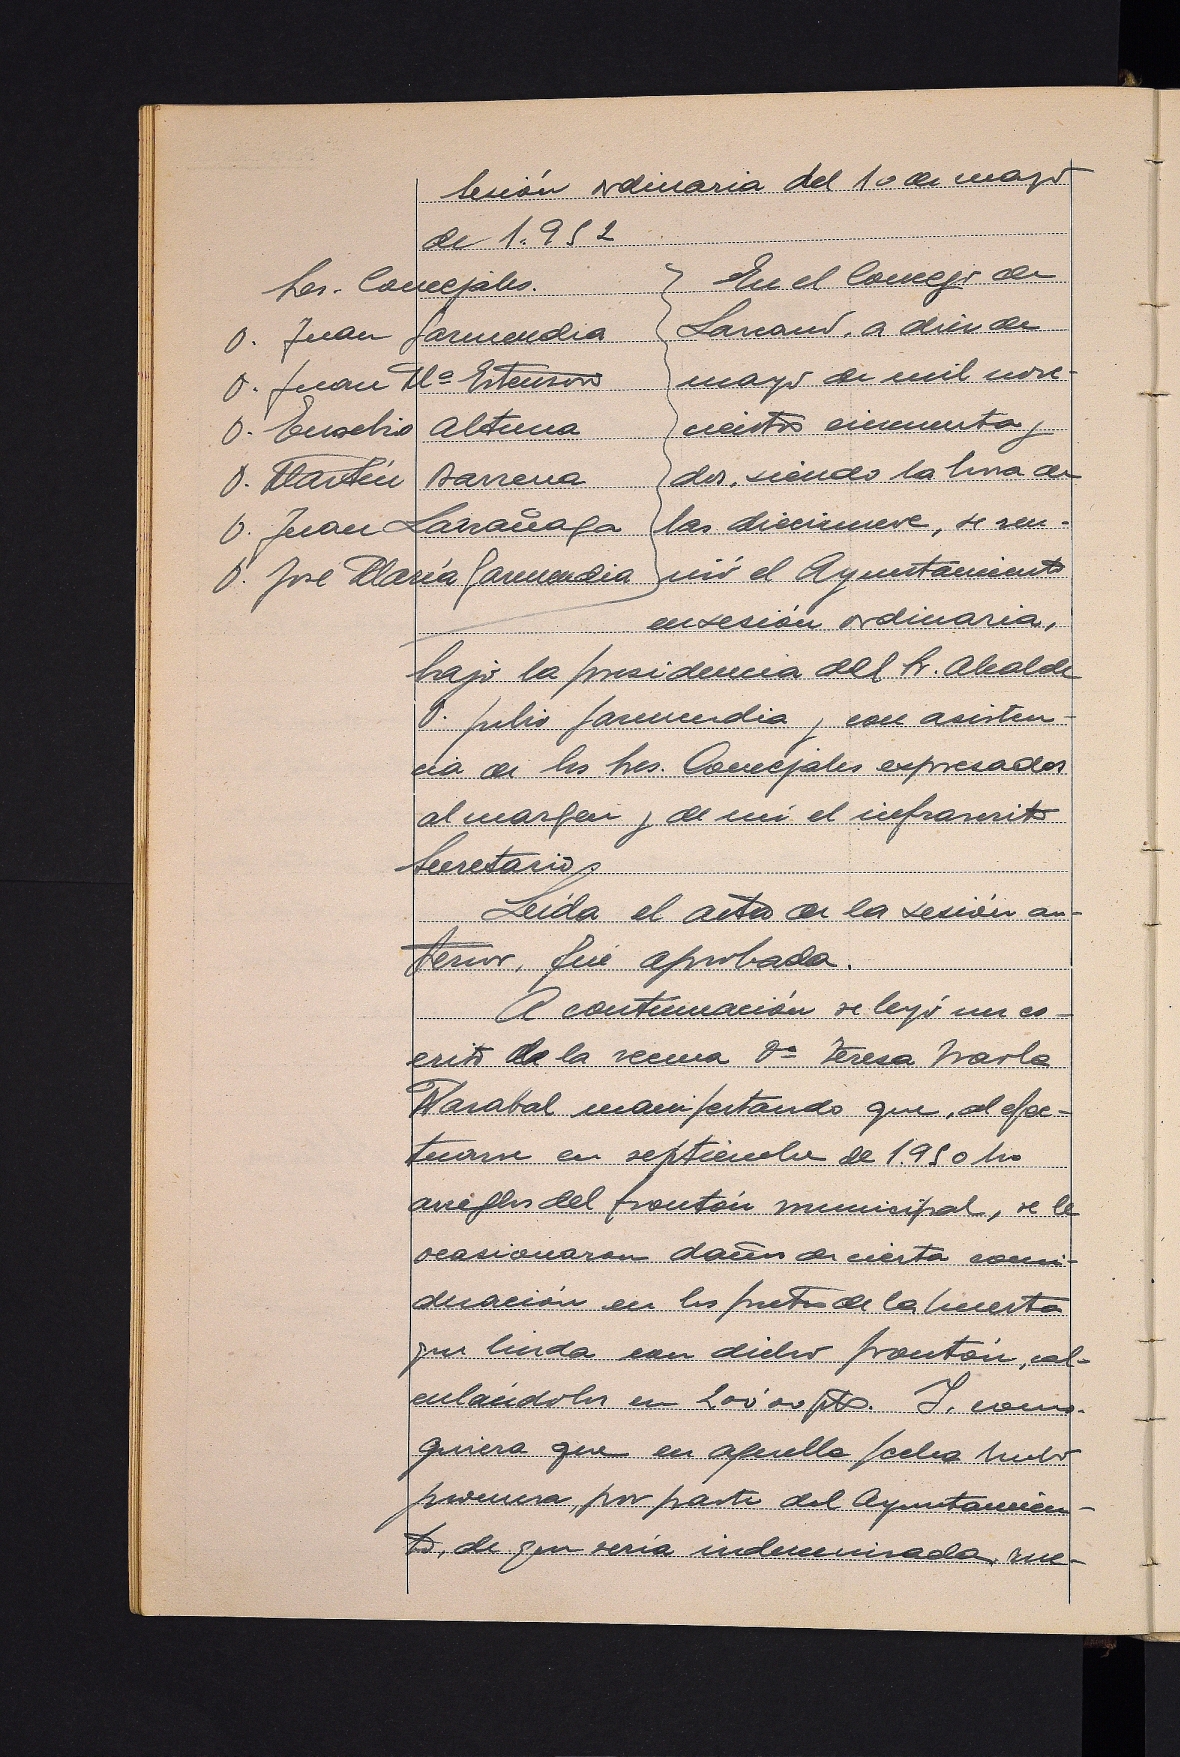 Sesión ordinaria del 10 de mayo
de 1.952
Srs. Concejales.
D. Juan Garmendia
D. Juan Mª Estensoro
D. Eusebio Altuna
D. Martín Barrena
D. Juan Larrañaga
D. Jose María Garmendia
En el Concejo de
Lazcano, a diez de
mayo de mil nove-
cientos cincuenta y
dos, siendo la hora de
las diecinueve, se reu-
nió el Ayuntamiento
en sesión ordinaria,
bajo la presidencia del Sr. Alcalde
D. Julio Garmendia y con asisten-
cia de los Srs. Concejales expresados
al margen y de mi el infrascrito
Secretario
Leída el acta de la sesión an-
terior, fué aprobada.
A continuación se leyó un es-
crito de la vecina Dª Teresa
Marabal manifestando que, al efec-
tuarse en septiembre de 1.950 los
arreglos del frontón municipal, se le
ocasionaron daños de cierta consi-
deración en los frutos de la huerta
que linda con dicho frontón, cal-
culándolos en 200'00 pts. Y, como-
quiera que en aquella fecha hubo
promesa, por parte del Ayuntamien-
to, de que sería indemnizada, rue-